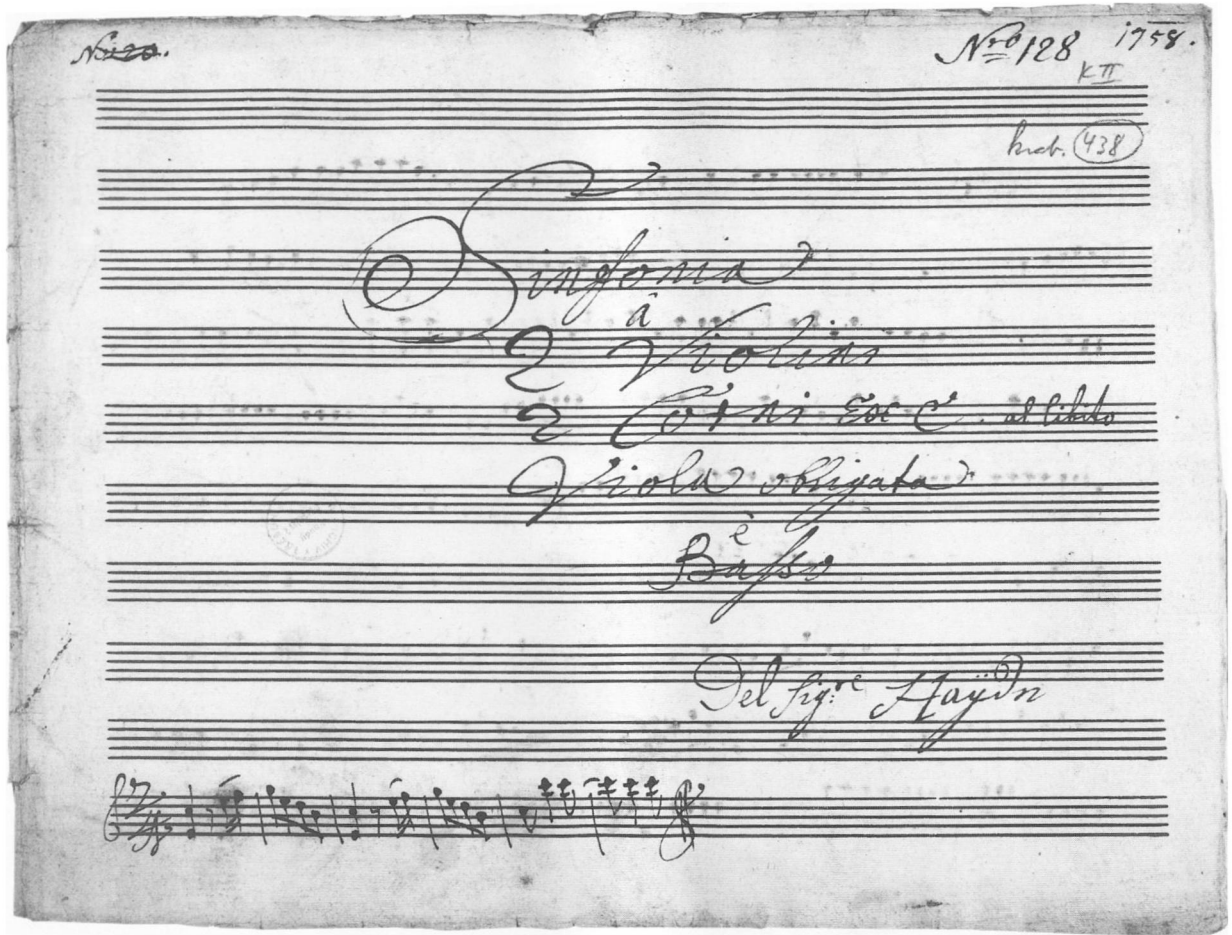 Nro 128 1758.
K II
438
Sinfonia
â
2 Violini
2 Corni Ex C. al libito
Viola obligata
è
Basso
Del Sigre Haÿdn